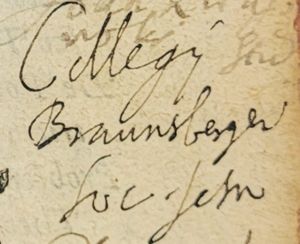 Collegij
Braunsberger
Soc. Jesu